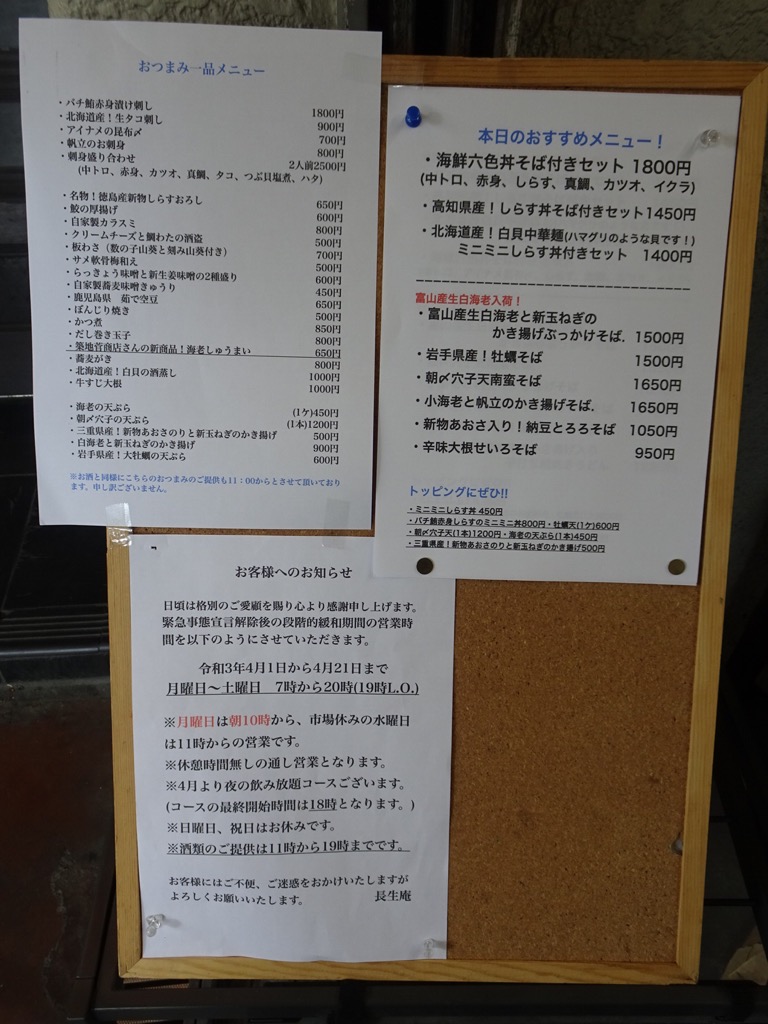 おつまみ一品メニュー
・バチ鮪赤身漬け刺し 1800円
・北海道産！生タコ刺し 900円
・アイナメの昆布〆 700円
・帆立のお刺身 800円
・刺身盛り合わせ 2人前2500円
(中トロ、赤身、カツオ、真鯛、タコ、つぶ貝塩煮、ハタ)
・名物！徳島産新物しらすおろし 650円
・鮫の厚揚げ 600円
・自家製カラスミ 800円
・クリームチーズと鯛わたの酒盗 500円
・板わさ（数の子山葵と刻み山葵付き） 700円
・サメ軟骨梅和え 500円
・らっきょう味噌と新生姜味噌の2種盛り 600円
・自家製蕎麦味噌きゅうり 450円
・鹿児島県 茹で空豆 650円
・ぼんじり焼き 500円
・かつ煮 850円
・だし巻き玉子 800円
・築地菅商店さんの新商品！海老しゅうまい 650円
・蕎麦がき 800円
・北海道産！白貝の酒蒸し 1000円
・牛すじ大根 1000円
・海老の天ぷら (1ケ)450円
・朝〆穴子の天ぷら (1本)1200円
・三重県産！新物あおさのりと新玉ねぎのかき揚げ 500円
・白海老と新玉ねぎのかき揚げ 900円
・岩手県産！大牡蠣の天ぷら 600円
※お酒と同様にこちらのおつまみのご提供も11：00からとさせて頂いております。申し訳ございません。
本日のおすすめメニュー！
・海鮮六色丼そば付きセット 1800円
(中トロ、赤身、しらす、真鯛、カツオ、イクラ)
・高知県産！しらす丼そば付きセット1450円
・北海道産！白貝中華麺(ハマグリのような貝です！)
ミニミニしらす丼付きセット 1400円
富山産生白海老入荷！
・富山産生白海老と新玉ねぎの
かき揚げぶっかけそば. 1500円
・岩手県産！牡蠣そば 1500円
・朝〆穴子天南蛮そば 1650円
・小海老と帆立のかき揚げそば. 1650円
・新物あおさ入り！納豆とろろそば 1050円
・辛味大根せいろそば 950円
トッピングにぜひ!!
・ミニミニしらす丼 450円
・バチ鮪赤身しらすのミニミニ丼800円・牡蠣天(1ケ)600円
・朝〆穴子天(1本)1200円・海老の天ぷら(1本)450円
・三重県産！新物あおさのりと新玉ねぎのかき揚げ500円
お客様へのお知らせ
日頃は格別のご愛顧を賜り心より感謝申し上げます。
緊急事態宣言解除後の段階的緩和期間の営業時
間を以下のようにさせていただきます。
令和3年4月1日から4月21日まで
月曜日〜土曜日 7時から20時(19時L.O.)
※月曜日は朝10時から、市場休みの水曜日
は11時からの営業です。
※休憩時間無しの通し営業となります。
※4月より夜の飲み放題コースございます。
(コースの最終開始時間は18時となります。)
※日曜日、祝日はお休みです。
※酒類のご提供は11時から19時までです。
お客様にはご不便、ご迷惑をおかけいたしますが
よろしくお願いいたします。 長生庵